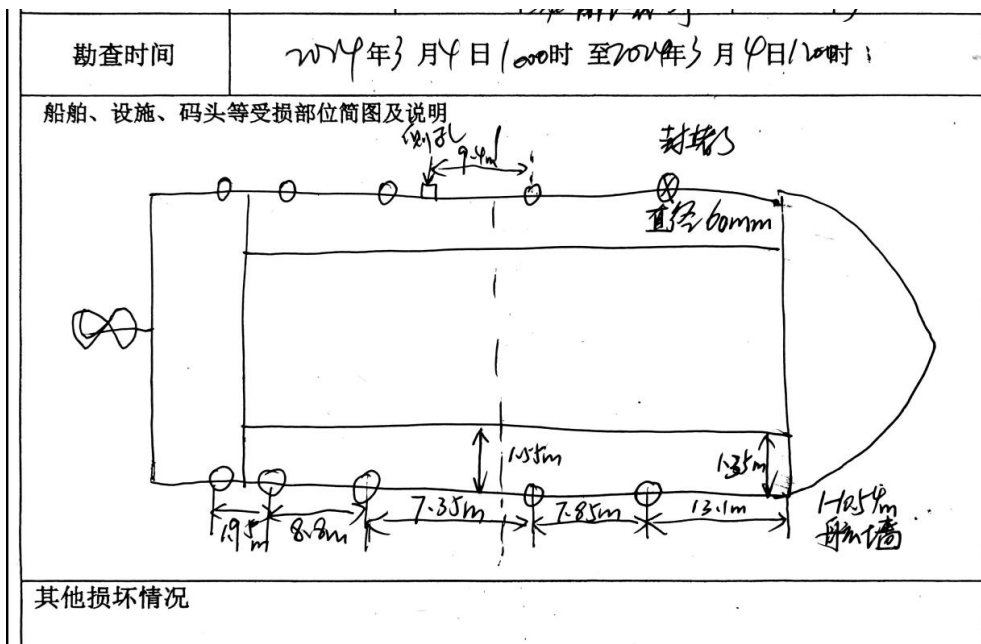 勘查时间
2024年3月4日1000时 至2024年3月4日1200时
船舶、设施、码头等受损部位简图及说明
测孔
9.4m
封堵
直径60mm
1.55m
1.35m
1.95m
8.8m
7.35m
7.85m
13.1m
其他损坏情况